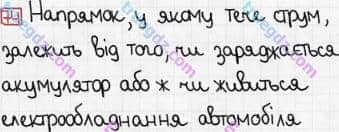 74 Напрямок, у якому тече струм,
залежить від того, чи заряджається
акумулятор або ж чи живиться
електрообладнання автомобіля